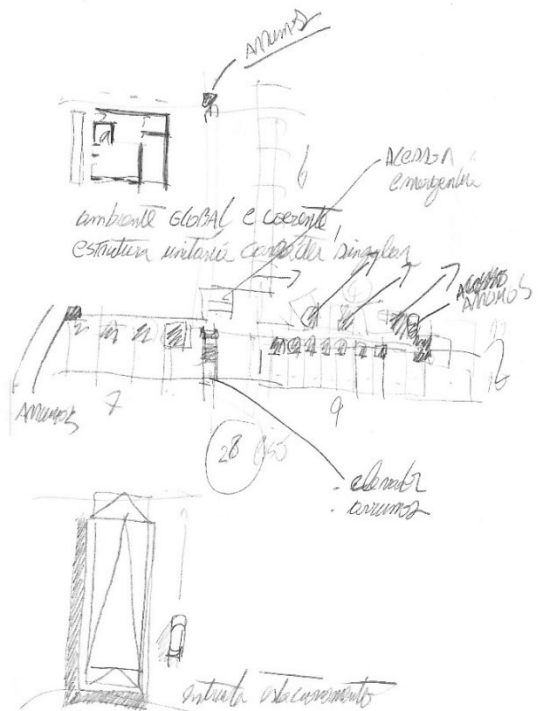 arrumos
acessos
emergência
ambiente GLOBAL e coerente,
estrutura unitária carácter singular
acessos
ARRUMOS
arrumos
7
9
28
. elevador
. arrumos
entrada estacionamento